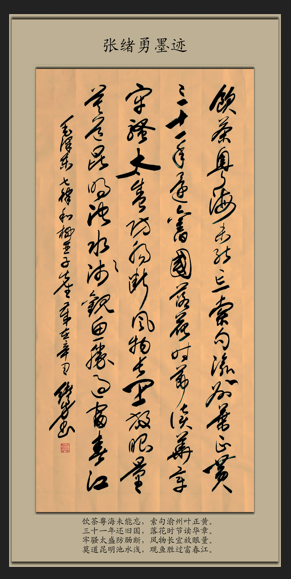 张绪勇墨迹
飲茶粤海未能忘索句渝州葉正黄
三十一年還舊國落花时節读華章
牢骚太盛防肠断风物长宜放眼量
莫道昆明池水浅觀鱼勝过富春江
毛泽东七律和柳亚子先生
饮茶粤海未能忘，索句渝州叶正黄。
三十一年还旧国，落花时节读华章。
牢骚太盛防肠断，风物长宜放眼量。
莫道昆明池水浅，观鱼胜过富春江。